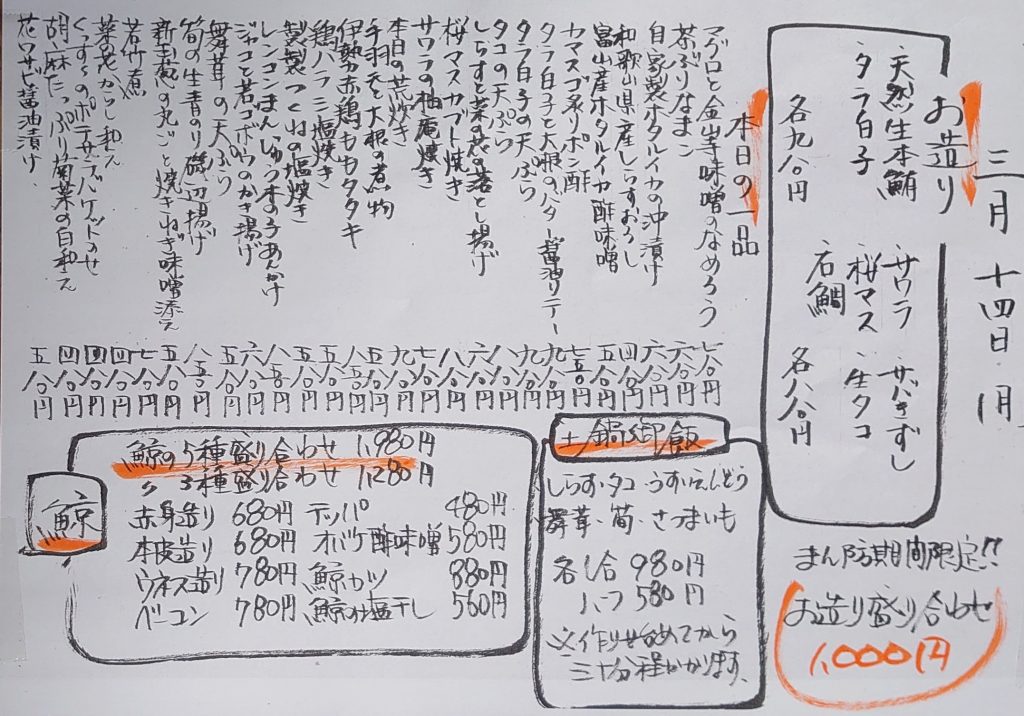 三月十四日・月
お造り
天然生本鮪
タラ白子
各九八〇円
サワラ サバきずし
桜マス・生タコ
石鯛 各八八〇円
本日の一品
マグロと金山寺味噌のなめろう 七八〇円
茶ぶりなまこ 六八〇円
自家製ホタルイカの沖漬け 六八〇円
和歌山県産しらすおろし 四八〇円
富山産ホタルイカ酢味噌 五八〇円
カマスゴ炙りポン酢 七五〇円
タラ白子と大根のバター醤油ソテー 九八〇円
タラ白子の天ぷら 九八〇円
タコの天ぷら 八八〇円
しらすと菜の花の落とし揚げ 六八〇円
桜マスカブト焼き 八八〇円
サワラの柚庵焼き 七八〇円
本日の荒炊き 九八〇円
手羽元と大根の煮物 五八〇円
伊勢赤鶏ももタタキ 八五〇円
鶏ハラミ塩焼き 五八〇円
自家製つくねの塩焼き 五八〇円
レンコンまんじゅう木の子あんかけ 八五〇円
ジャコと若ゴボウのかき揚げ 六八〇円
舞茸の天ぷら 五八〇円
筍の生青のり磯辺揚げ 八五〇円
新玉葱の丸ごと焼きねぎ味噌添え 五八〇円
若竹煮 七八〇円
菜の花からし和え 四八〇円
くっすぅのポテサラバケットのせ 四八〇円
胡麻たっぷり菊菜の白和え 四八〇円
花ワサビ醤油漬け 五八〇円
土鍋御飯
しらす・タコ・うすいえんどう
舞茸・筍・さつまいも
各1合 980円
ハーフ 580円
※作り始めてから
三十分程かかります。
鯨
鯨の5種盛り合わせ 1,980円
〃 3種盛り合わせ 1,280円
赤身造り 680円 テッパ 480円
本皮造り 680円 オバケ酢味噌 580円
ウネス造り 780円 鯨カツ 880円
ベーコン 780円 鯨の塩干し 560円
まん防期間限定!!
お造り盛り合わせ
1,000円